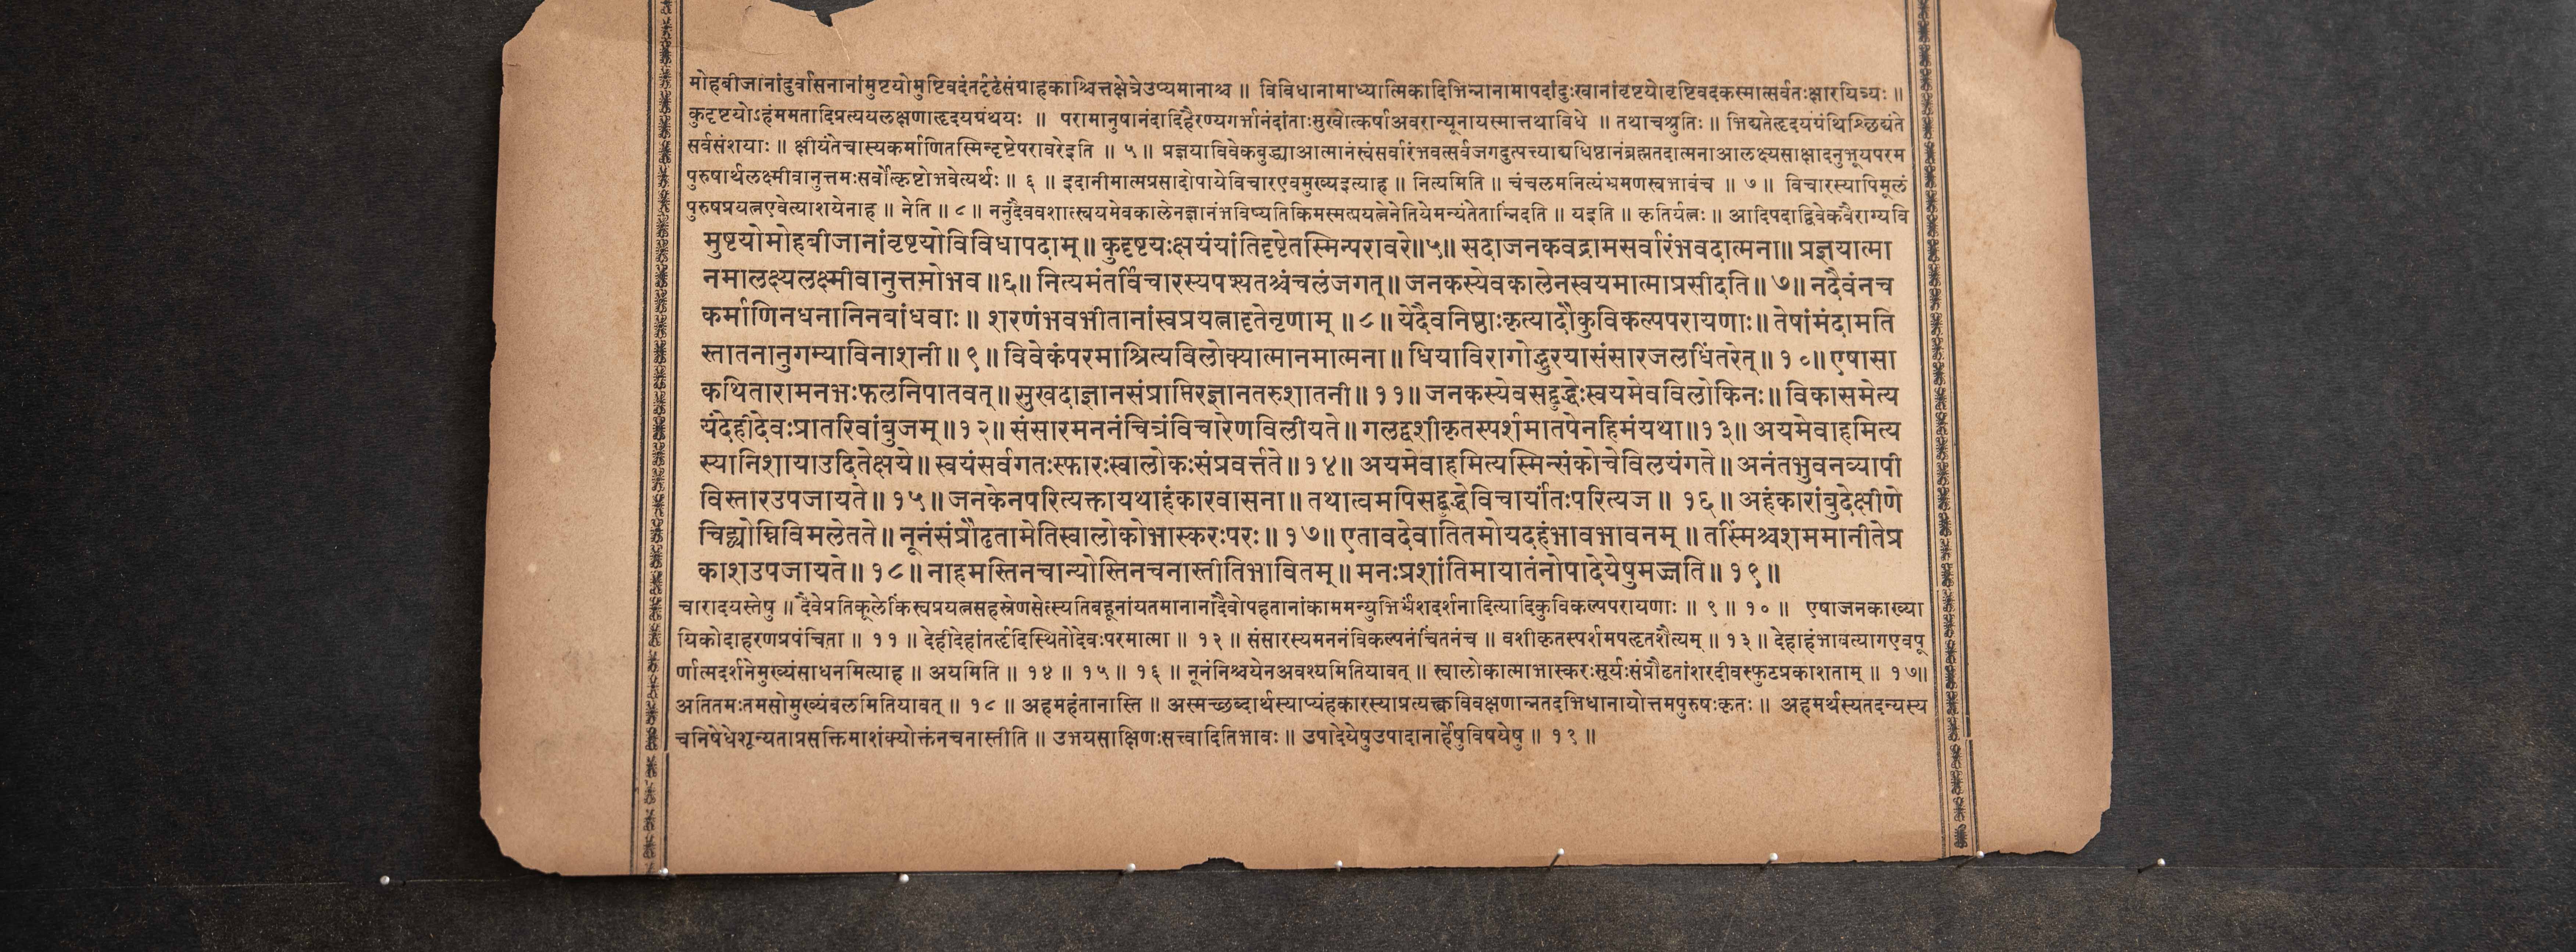 मोहबीजानांदुर्वासनानांमुष्टयोमुष्टिवदंतर्दृढंसंग्राहकाश्चित्तक्षेत्रेउप्यमानाश्च ॥ विविधानामाध्यात्मिकादिभिन्नानामापदांदुःखानांवृष्टयोवृष्टिवदकस्मात्सर्वतःक्षारयित्र्यः ॥
कुदृष्टयोऽहंममतादिप्रत्ययलक्षणाहृदयग्रंथयः ॥ परामानुषानंदादिहैरण्यगर्भानंदांताःसुखोत्कर्षाअवरान्यूनायस्मात्तथाविधे ॥ तथाचश्रुतिः ॥ भिद्यतेहृदयग्रंथिश्छिद्यंते
सर्वसंशयाः ॥ क्षीयंतेचास्यकर्माणितस्मिन्दृष्टेपरावरेइति ॥ ५ ॥ प्रज्ञयाविवेकबुद्ध्याआत्मानंस्वंसर्वारंभवत्सर्वजगदुत्पत्त्याद्यधिष्ठानंब्रह्मतदात्मनाआलक्ष्यसाक्षादनुभूयपरम
पुरुषार्थलक्ष्मीवानुत्तमःसर्वोत्कृष्टोभवेत्यर्थः ॥ ६ ॥ इदानीमात्मप्रसादोपायेविचारएवमुख्यइत्याह ॥ नित्यमिति ॥ चंचलमनित्यंभ्रमणस्वभावंच ॥ ७ ॥ विचारस्यापिमूलं
पुरुषप्रयत्नएवेत्याशयेनाह ॥ नेति ॥ ८ ॥ ननुदैववशात्स्वयमेवकालेनज्ञानंभविष्यतिकिमस्मत्प्रयत्नेनेतियेमन्यंतेतान्निंदति ॥ यइति ॥ कृतिर्यत्नः ॥ आदिपदाद्विवेकवैराग्यवि
मुष्टयोमोहबीजानांवृष्टयोविविधापदाम् ॥ कुदृष्टयःक्षयंयांतिदृष्टेतस्मिन्परावरे॥५॥ सदाजनकवद्रामसर्वारंभवदात्मना॥ प्रज्ञयात्मा
नमालक्ष्यलक्ष्मीवानुत्तमोभव॥६॥ नित्यमंतर्विचारस्यपश्यतश्चंचलंजगत्॥ जनकस्येवकालेनस्वयमात्माप्रसीदति॥ ७॥ नदैवंनच
कर्माणिनधनानिनबांधवाः॥ शरणंभवभीतानांस्वप्रयत्नादृतेनृणाम् ॥८॥ येदैवनिष्ठाःकृत्यादौकुविकल्पपरायणाः॥ तेषांमंदामति
स्तातनानुगम्याविनाशनी॥ ९॥ विवेकंपरमाश्रित्यविलोक्यात्मानमात्मना॥ धियाविरागोद्धुरयासंसारजलधिंतरेत्॥ १०॥ एषासा
कथितारामनभःफलनिपातवत्॥ सुखदाज्ञानसंप्राप्तिरज्ञानतरुशातनी॥ ११॥ जनकस्येवसद्बुद्धेःस्वयमेवविलोकिनः॥ विकासमेत्य
यंदेहीदेवःप्रातरिवांबुजम्॥१२॥ संसारमननंचित्रंविचारेणविलीयते॥ गलद्वशीकृतस्पर्शमातपेनहिमंयथा॥१३॥ अयमेवाहमित्य
स्यानिशायाउदितेक्षये॥ स्वयंसर्वगतःस्फारःस्वालोकःसंप्रवर्त्तते॥१४॥ अयमेवाहमित्यस्मिन्संकोचेविलयंगते॥ अनंतभुवनव्यापी
विस्तारउपजायते॥ १५॥ जनकेनपरित्यक्तायथाहंकारवासना॥ तथात्वमपिसद्बुद्धेविचार्यांतःपरित्यज ॥ १६॥ अहंकारांबुदेक्षीणे
चिद्व्योम्निविमलेतते॥ नूनंसंप्रौढतामेतिस्वालोकोभास्करःपरः॥ १७॥ एतावदेवातितमोयदहंभावभावनम् ॥ तस्मिंश्चशममानीतेप्र
काशउपजायते॥ १८॥ नाहमस्तिनचान्योस्तिनचनास्तीतिभावितम्॥ मनःप्रशांतिमायातंनोपादेयेषुमज्जति॥ १९॥
चारादयस्तेषु ॥ दैवेप्रतिकूलेकिंस्वप्रयत्नसहस्रेणसेत्स्यतिबहूनांयतमानानांदैवोपहतानांकाममन्युभिर्भ्रंशदर्शनादित्यादिकुविकल्पपरायणाः ॥ ९ ॥ १० ॥ एषाजनकाख्या
यिकोदाहरणप्रपंचिता ॥ ११ ॥ देहीदेहांतर्हृदिस्थितोदेवःपरमात्मा ॥ १२ ॥ संसारस्यमननंविकल्पनंचिंतनंच ॥ वशीकृतस्पर्शमपहृतशैत्यम् ॥ १३ ॥ देहाहंभावत्यागएवपू
र्णात्मदर्शनेमुख्यंसाधनमित्याह ॥ अयमिति ॥ १४ ॥ १५ ॥ १६ ॥ नूनंनिश्चयेनअवश्यमितियावत् ॥ स्वालोकात्माभास्करःसूर्यःसंप्रौढतांशरदीवस्फुटप्रकाशताम् ॥ १७॥
अतितमःतमसोमुख्यंबलमितियावत् ॥ १८ ॥ अहमहंतानास्ति ॥ अस्मच्छब्दार्थस्याप्यंहकारस्याप्रत्यक्त्वविवक्षणान्नतदभिधानायोत्तमपुरुषःकृतः ॥ अहमर्थस्यतदन्यस्य
चनिषेधेशून्यताप्रसक्तिमाशंक्योक्तंनचनास्तीति ॥ उभयसाक्षिणःसत्त्वादितिभावः ॥ उपादेयेषुउपादानार्हेषुविषयेषु ॥ १९ ॥